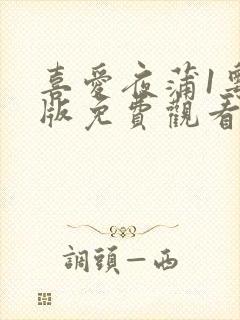 喜愛夜蒲1粵
版免費觀看
調頭—西